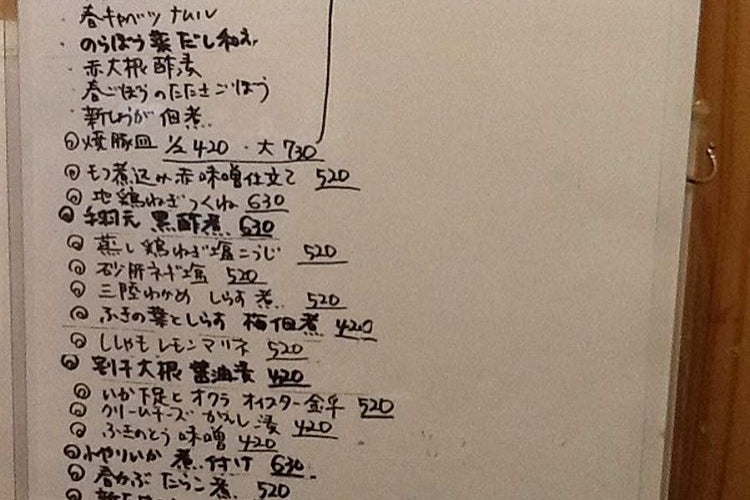 ・春キャベツ ナムル
・のらぼう菜 だし和え
・赤大根 酢漬
・春ごぼうのたたきごぼう
・新しょうが 佃煮
◎焼豚皿 1/2 420 ・大 730
◎モツ煮込み赤味噌仕立て 520
◎地鶏ねぎつくね 630
◎手羽元 黒酢煮 630
◎蒸し鶏ねぎ塩こうじ 520
◎砂肝ネギ塩 520
◎三陸わかめ しらす煮 520
◎ふきの葉としらす 梅佃煮 420
◎ししゃもレモンマリネ 520
◎割干大根 醤油漬 420
◎いか下足とオクラ オイスター 520
◎クリームチーズ かえし漬 420
◎ふきのとう味噌 420
◎小やりいか 煮付け 630
◎春かぶ たらこ煮 520